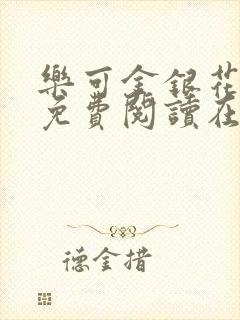 樂可金銀花
免費閱讀在
德金措